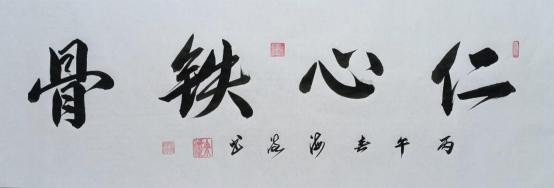 仁心铁骨
丙午春海岩书